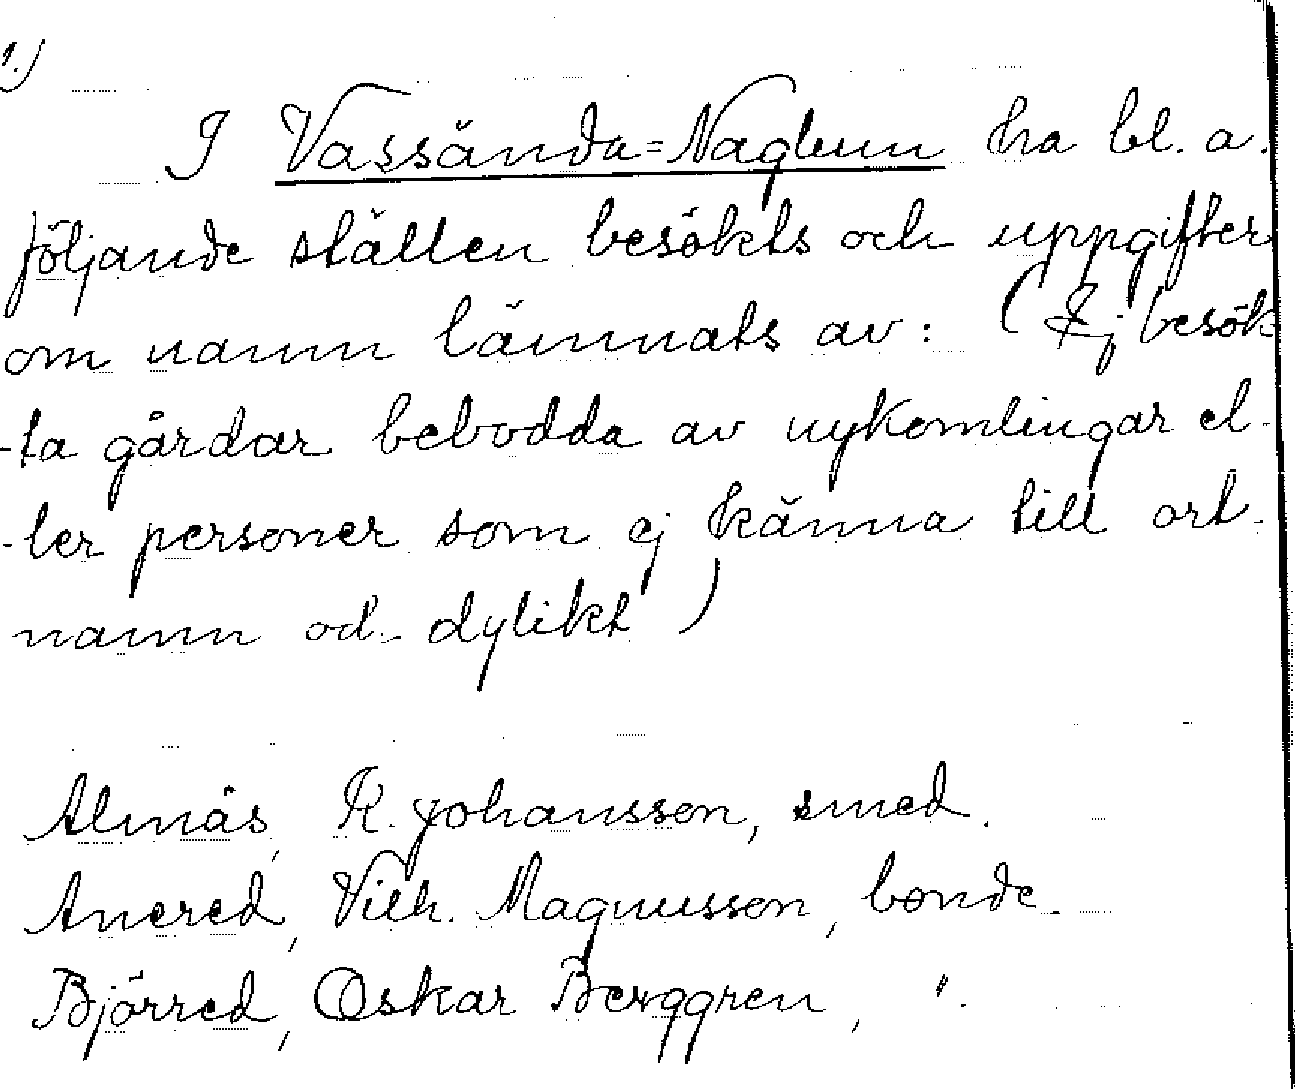 1.)
I Vassända=Naglum ha bl. a.
följande ställen besökts och uppgifter
om namn lämnats av: (Ej besök-
-ta gårdar bebodda av nykomlingar el-
-ler personer som ej känna till ort-
namn od. dylikt)
Almäs, K. Johansson, smed.
Anered, Vilh. Magnusson, bonde.
Björred, Oskar Berggren, ".